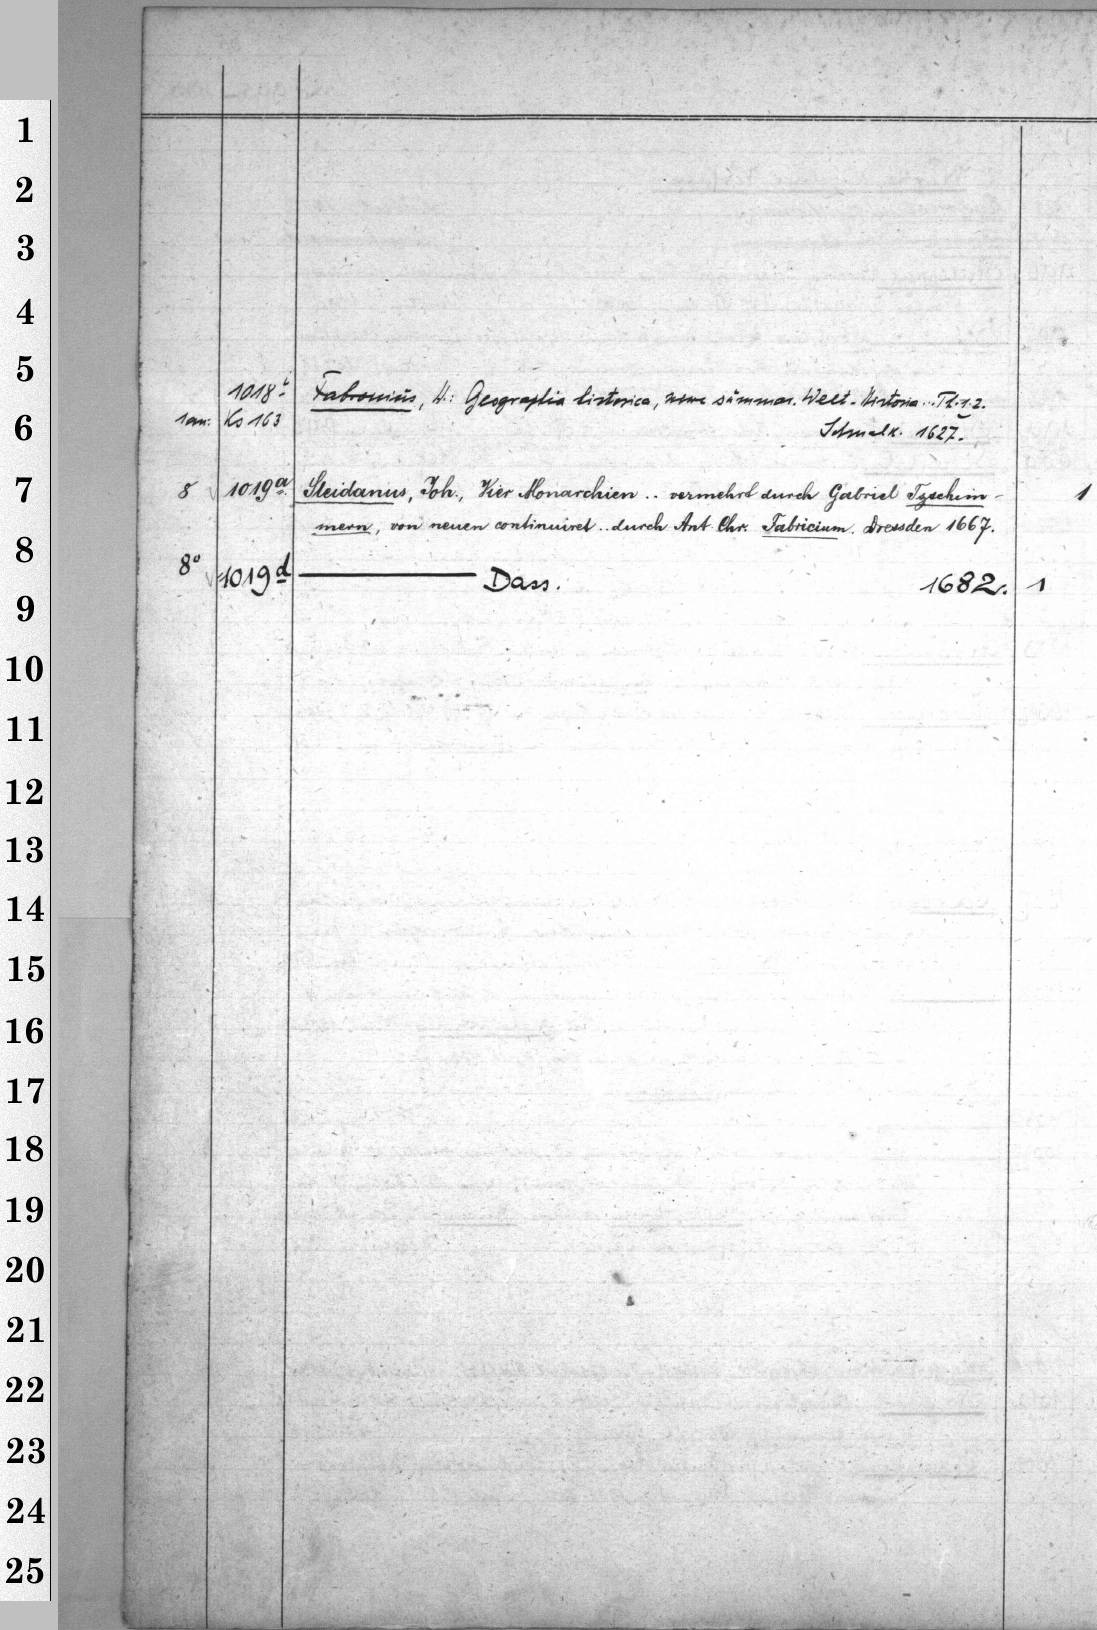 1
2
3
4
5
6
7
8
9
10
11
12
13
14
15
16
17
18
19
20
21
22
23
24
25
1018
Fabronius, H.: Geographia historica, newe summar. Welt-Historia .. Th. 1.2.
1 an: Ks 163 Schmalk. 1627.
8 1019a Sleidanus, Joh., Vier Monarchien .. vermehrt durch Gabriel Tzschim- 1
mern, von neuen continuiret .. durch Ant. Chr. Fabricium. Dressden 1667.
8° 1019d Dass. 1682. 1